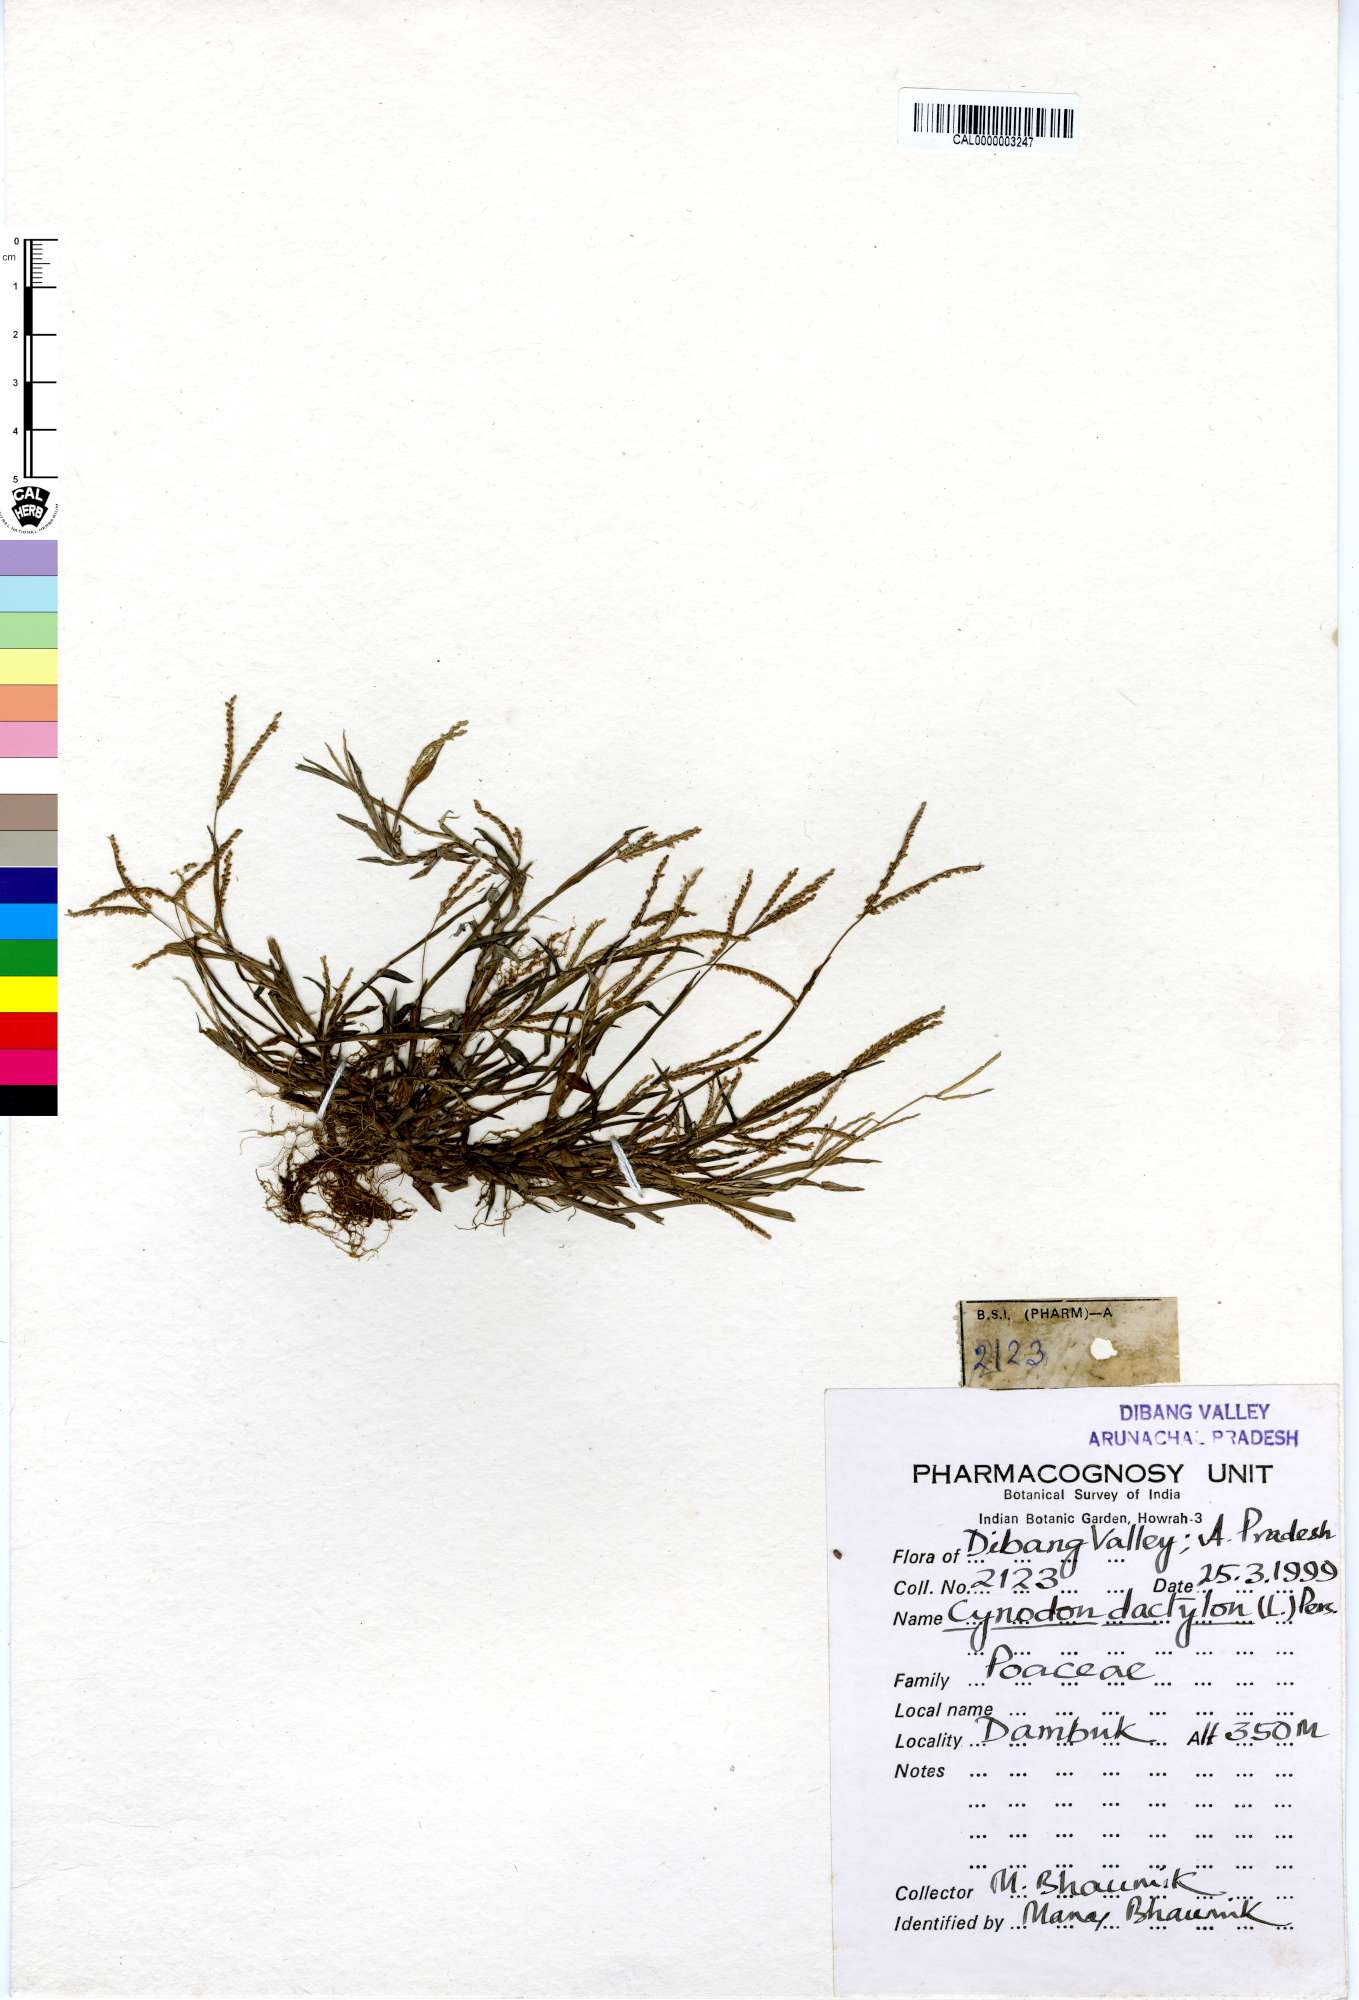 CAL0000003247
0
cm
1
2
3
4
5
CAL
HERB
B.S.I. (PHARM)—A
2123
DIBANG VALLEY
ARUNACHAL PRADESH
PHARMACOGNOSY UNIT
Botanical Survey of India
Indian Botanic Garden, Howrah-3
Flora of Dibang Valley; A. Pradesh
Coll. No. 2123 Date 25.3.1999
Name Cynodon dactylon (L.) Pers.
Family Poaceae
Local name
Locality Dambuk Alt 350M
Notes
Collector M. Bhaumik
Identified by Manas Bhaumik